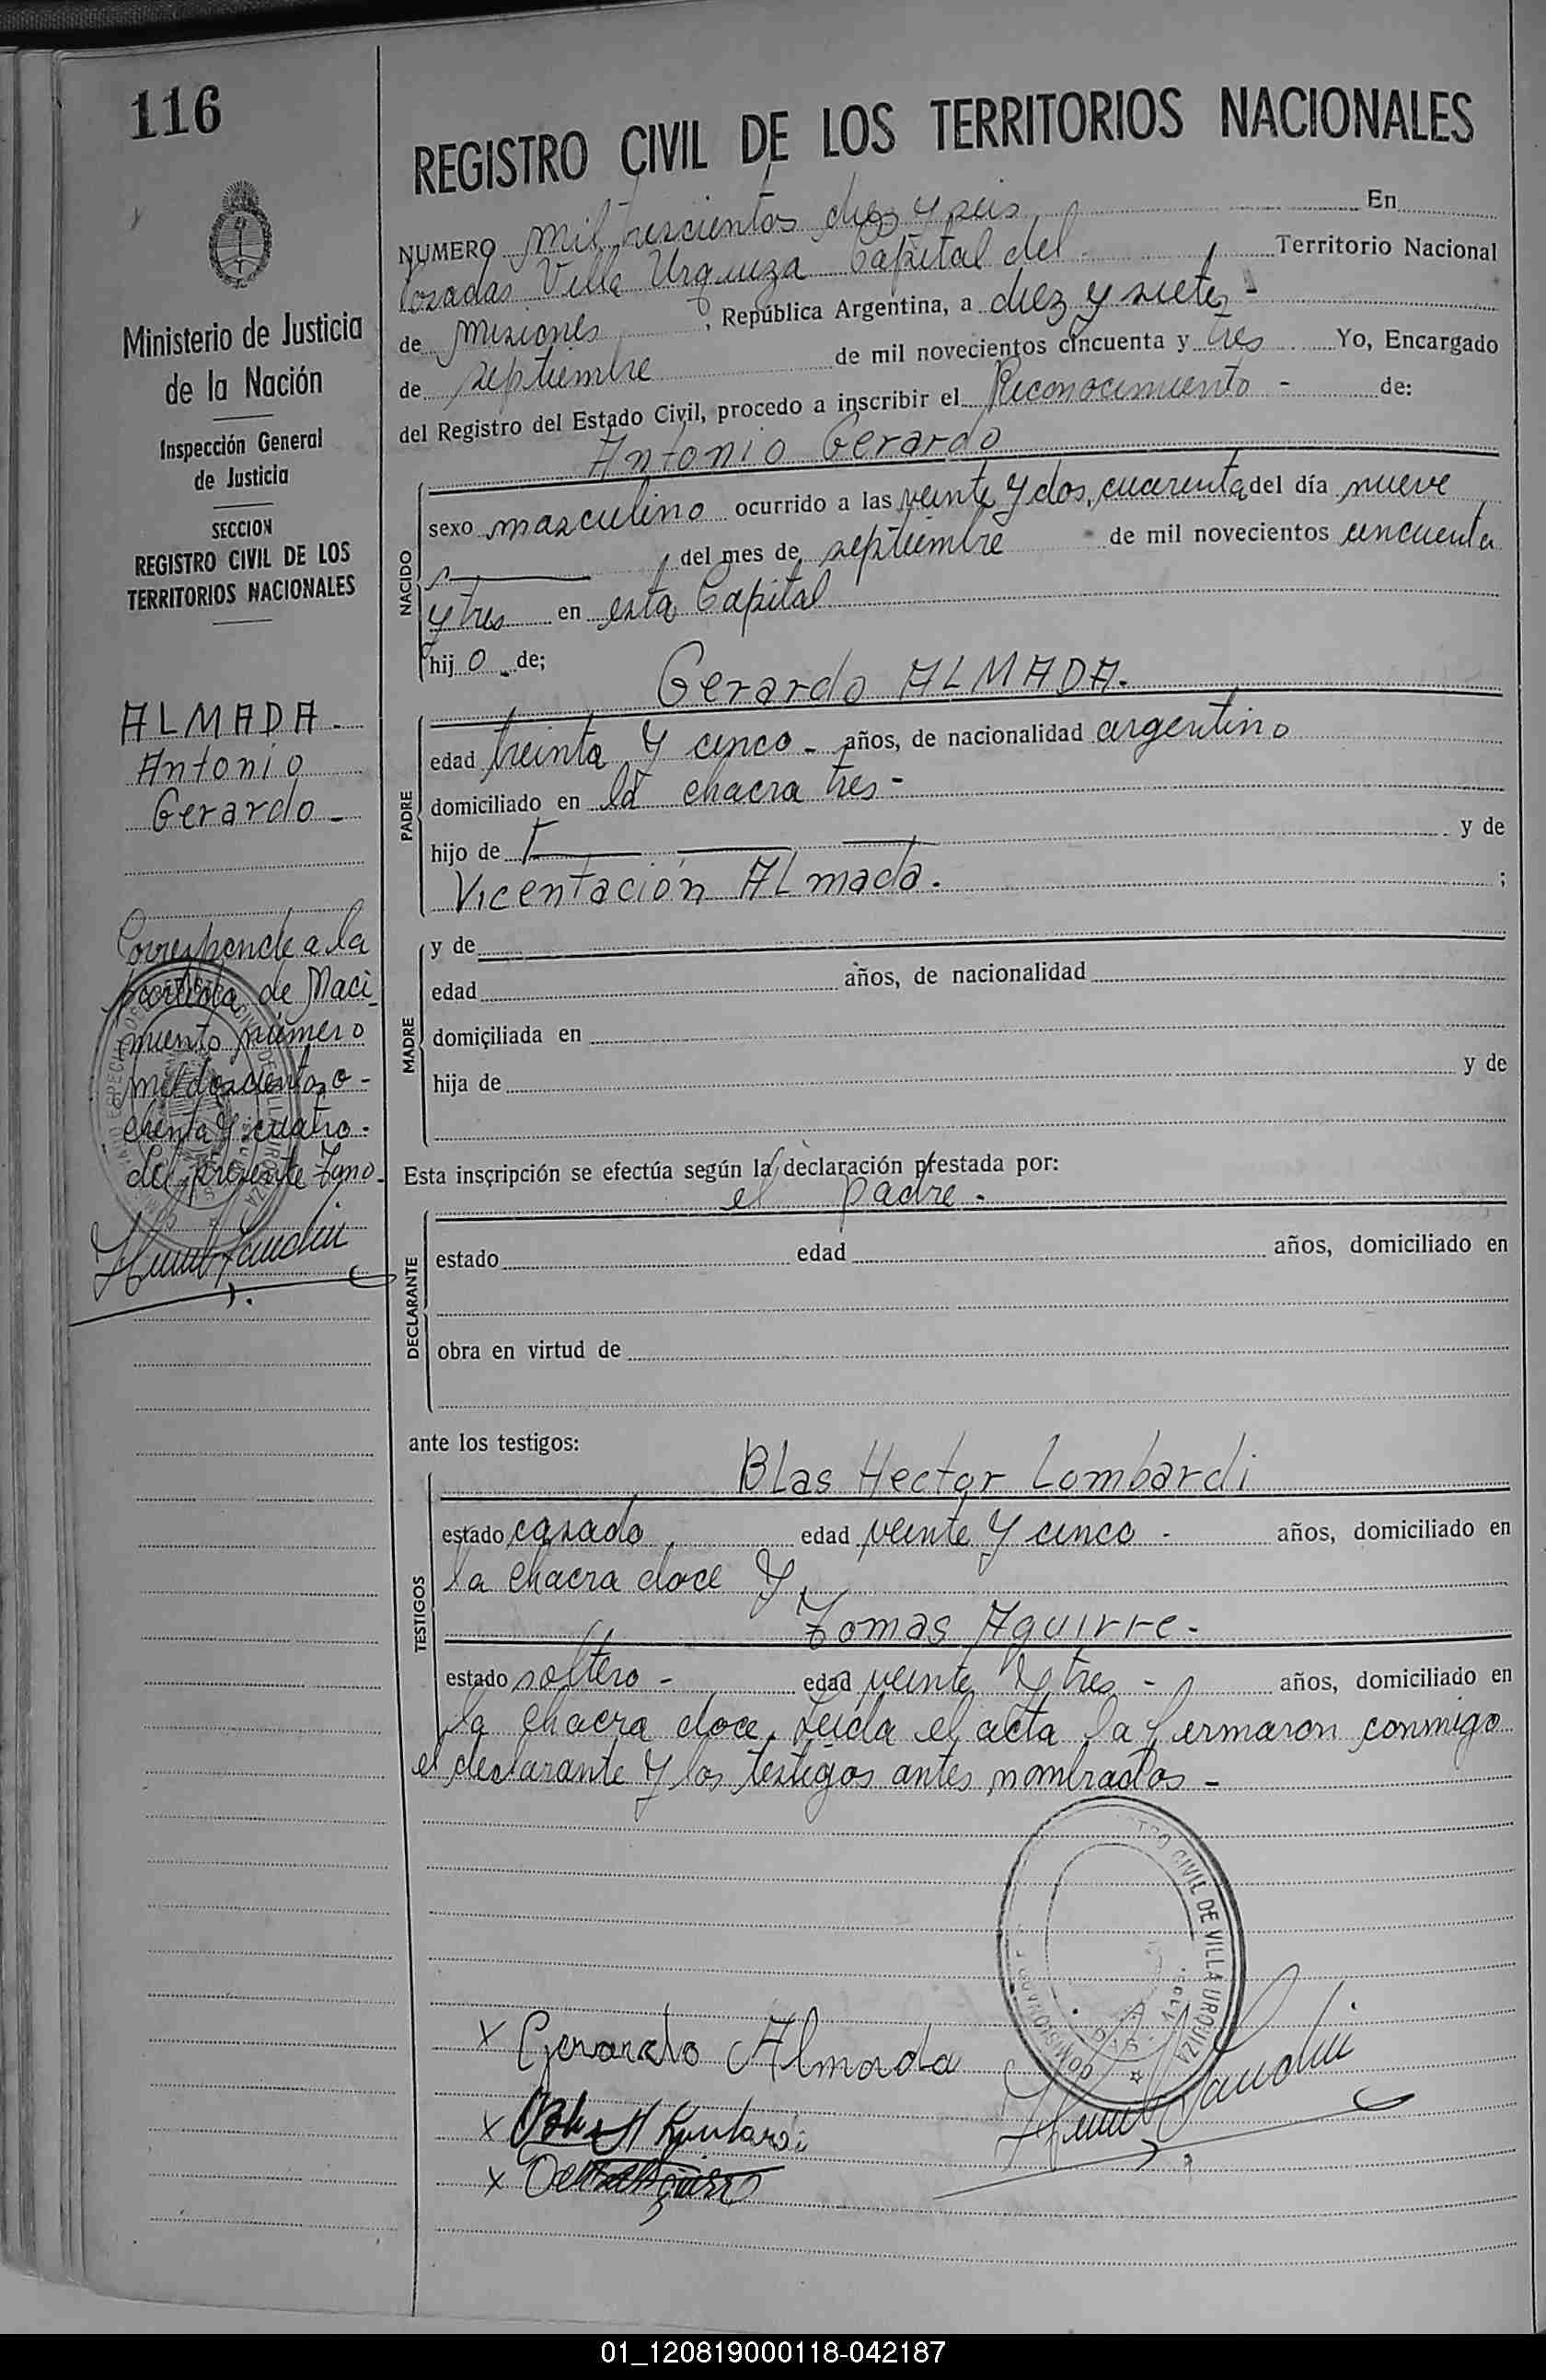 116
Ministerio de Justicia
de la Nación
Inspección General
de Justicia
SECCION
REGISTRO CIVIL DE LOS
TERRITORIOS NACIONALES
ALMADA.
Antonio
Gerardo
Corresponde a la
partida de Naci-
miento número
mil doscientos o-
chenta y cuatro
del presente tomo.
REGISTRO CIVIL DE LOS TERRITORIOS NACIONALES
NUMERO mil trescientos diez y seis En
Posadas Villa Urquiza Capital del Territorio Nacional
de Misiones, República Argentina, a diez y siete -
de septiembre de mil novecientos cincuenta y tres Yo, Encargado
del Registro del Estado Civil, procedo a inscribir el Reconocimiento - de:
Antonio Gerardo
NACIDO
sexo masculino ocurrido a las veinte y dos, cuarenta del día nueve
del mes de septiembre de mil novecientos cincuenta
y tres en esta Capital
hijo de;
Gerardo ALMADA.
PADRE
edad treinta y cinco - años, de nacionalidad argentino
domiciliado en la chacra tres -
hijo de y de
Vicentación Almada. ;
MADRE
y de
edad años, de nacionalidad
domiciliada en
hija de y de
Esta inscripción se efectúa según la declaración prestada por:
el padre.
DECLARANTE
estado edad años, domiciliado en
obra en virtud de
ante los testigos:
Blas Hector Lombardi
TESTIGOS
estado casado edad veinte y cinco - años, domiciliado en
la chacra doce y
Tomas Aguirre.
estado soltero - edad veinte y tres - años, domiciliado en
la chacra doce. Leida el acta la firmaron conmigo
el declarante y los testigos antes nombrados -
CIVIL DE VILLA URQUIZA
x Gerardo Almada
x Blas H Lombardi
x
01_120819000118-042187